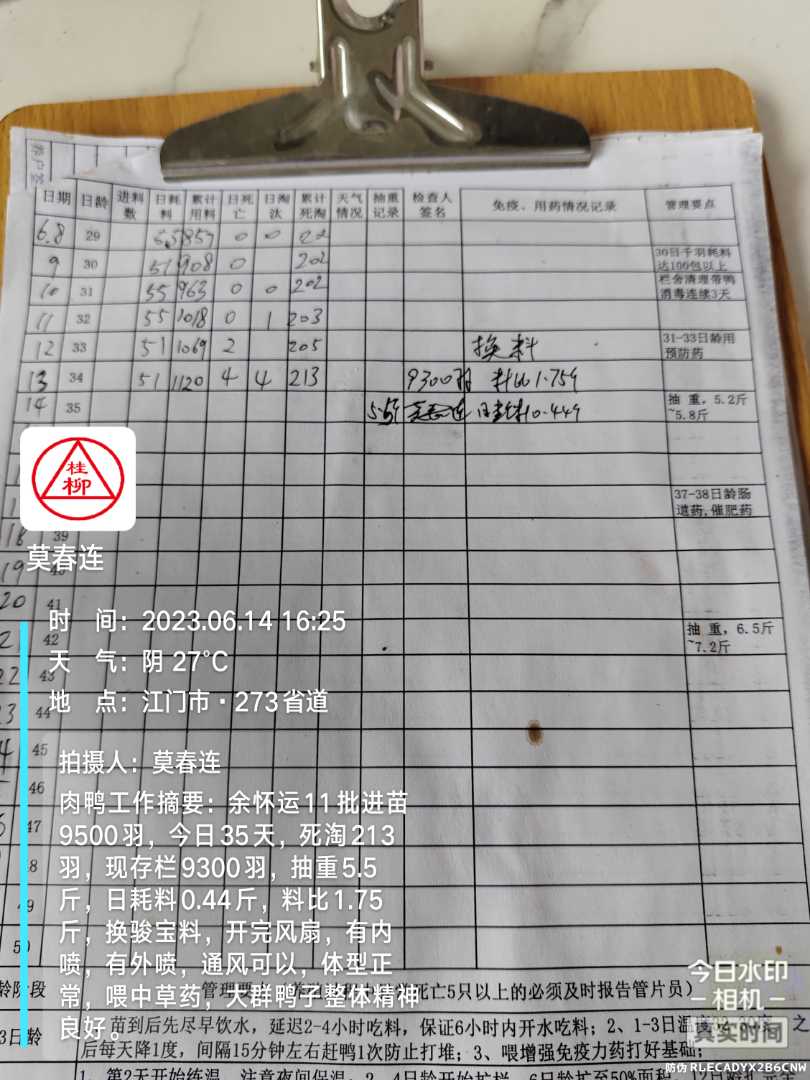 日期 日龄 进料数 日耗料 累计用料 日死亡 日淘汰 累计死淘 天气情况 抽重记录 检查人签名 免疫、用药情况记录 管理要点
6.8 29 857 0 0
9 30 51 908 0 202 30日千羽耗料达100包以上
10 31 55 963 0 0 202 栏舍清理带鸭消毒连续3天
11 32 55 1018 0 1 203
12 33 51 1069 2 205 换料 31-33日龄用预防药
13 34 51 1120 4 4 213 9300羽 料比1.75斤
14 35 5.5斤 莫春连 日耗料0.44斤 抽重,5.2斤~5.8斤
37-38日龄肠道药,催肥药
18 39
19
20 41
42 抽重,6.5斤~7.2斤
43
44
45
46
47
50
桂柳
莫春连
时 间:2023.06.14 16:25
天 气:阴 27℃
地 点:江门市·273省道
拍摄人:莫春连
肉鸭工作摘要:余怀运11批进苗
9500羽,今日35天,死淘213
羽,现存栏9300羽,抽重5.5
斤,日耗料0.44斤,料比1.75
斤,换骏宝料,开完风扇,有内
喷,有外喷,通风可以,体型正
常,喂中草药,大群鸭子整体精神
良好。
龄阶段 管理要 死亡5只以上的必须及时报告管片员)
3日龄 苗到后先尽早饮水,延迟2-4小时吃料,保证6小时内开水吃料;2、1-3日温度
后每天降1度,间隔15分钟左右赶鸭1次防止打堆;3、喂增强免疫力药打好基础;
1、第2天开始练温,注意夜间保温
今日水印
相机
真实时间
防伪 RLECADYX2B6CNK